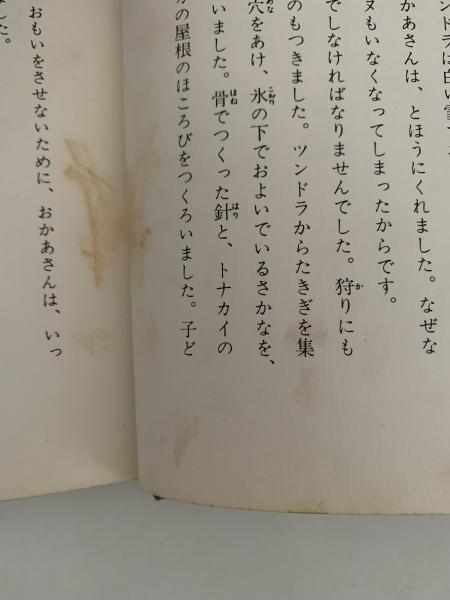 ンドラは白い雪
かあさんは、とほうにくれました。なぜな
ヌもいなくなってしまったからです。
でしなければなりませんでした。狩りにも
のもつきました。ツンドラからたきぎを集
穴をあけ、氷の下でおよいでいるさかなを、
いました。骨でつくった針と、トナカイの
の屋根のほころびをつくろいました。子ど
おもいをさせないために、おかあさんは、いっ
した。